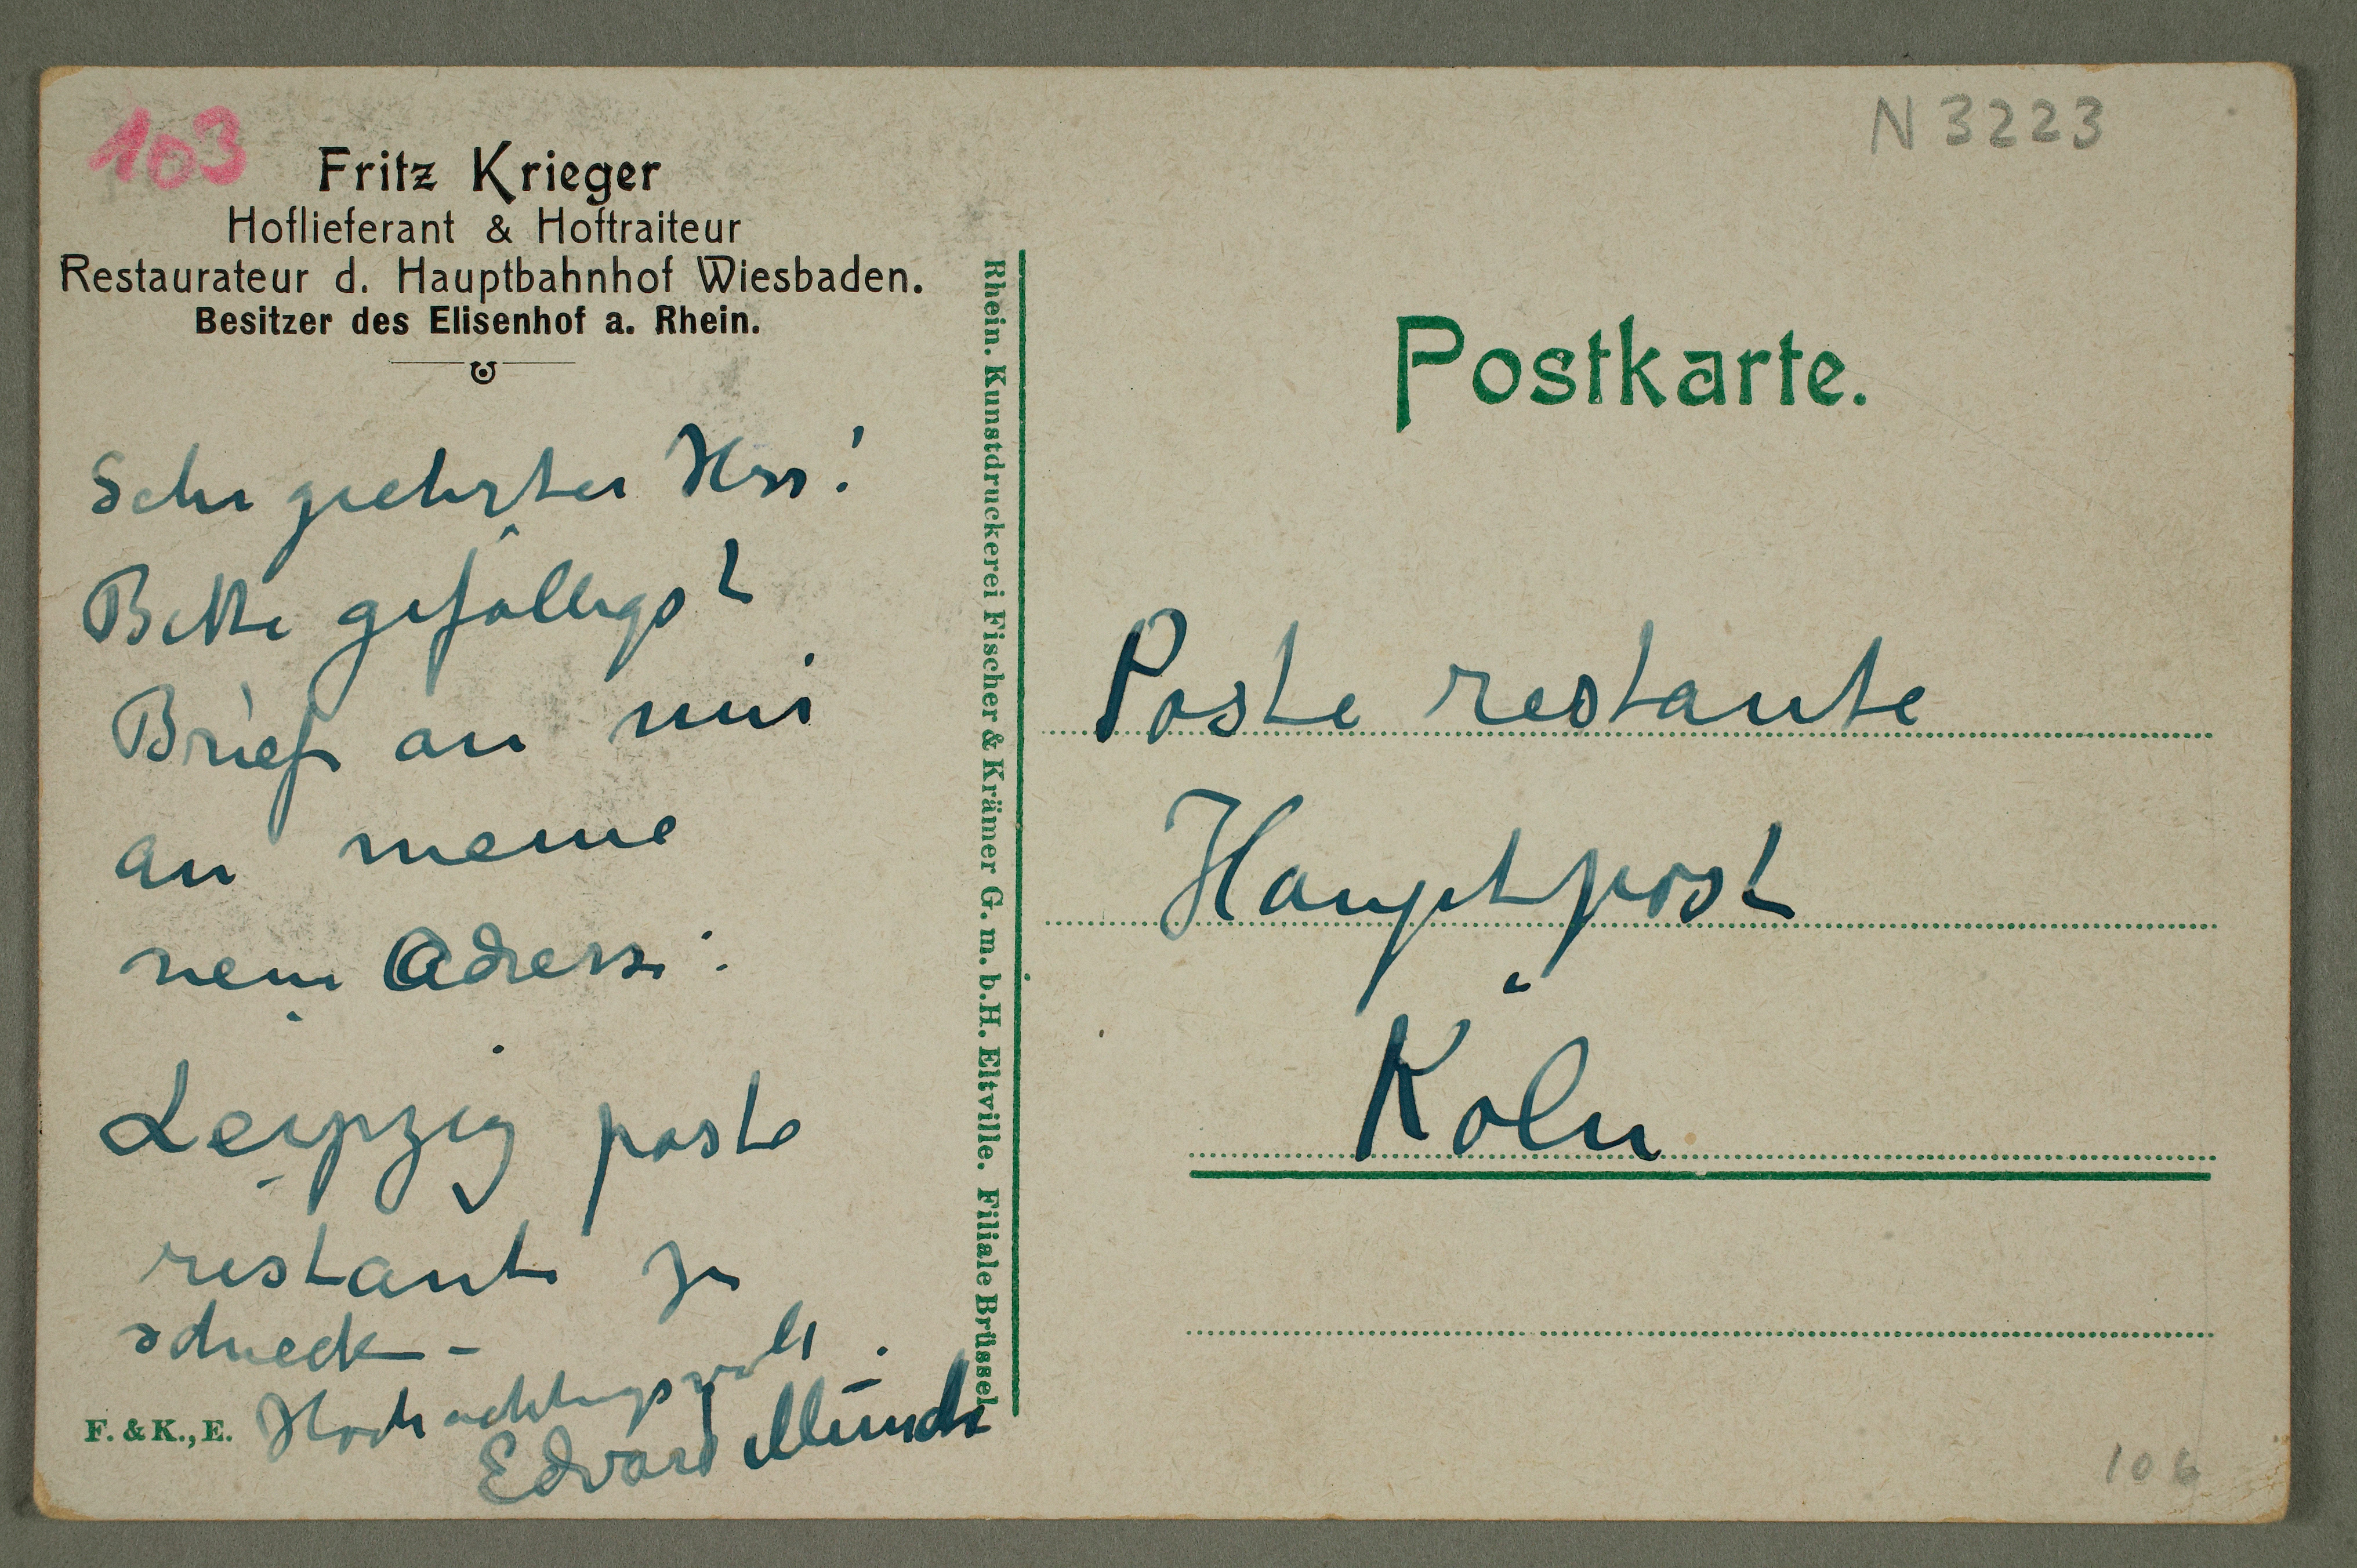 103
Fritz Krieger
Hoflieferant & Hoftraiteur
Restaurateur d. Hauptbahnhof Wiesbaden.
Besitzer des Elisenhof a. Rhein.
Sehr geehrter Herr!
Bitte gefälligst
Briefe an mir
an meine
neue Adresse:
Leipzig poste
restante zu
schicken –
Hochachtungsvoll
Edvard Munch
F. & K., E.
Rhein. Kunstdruckerei Fischer & Krämer G. m. b. H. Eltville. Filiale Brüssel
N 3223
Postkarte.
Poste restante
Hauptpost
Köln
106